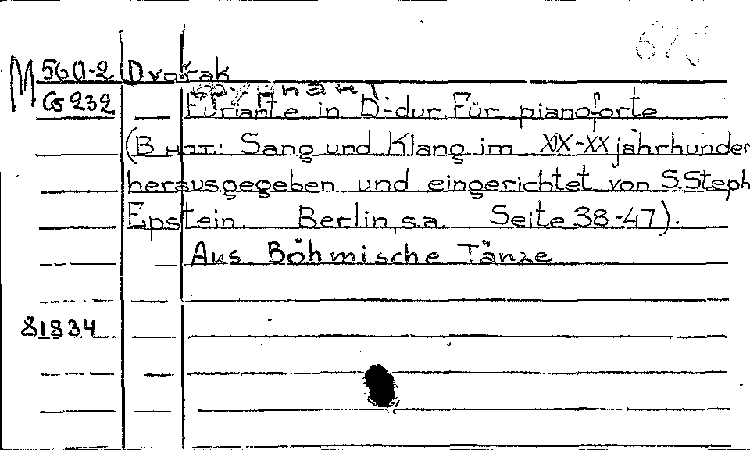 M 560-2 Dvořak
G 232 Furiante in D-dur. Für pianoforte
(В нот.: Sang und Klang im XIX-XX jahrhunder
herausgegeben und eingerichtet von S. Steph
Epstein. Berlin, s.a. Seite 38-47).
Aus Böhmische Tänze
81834